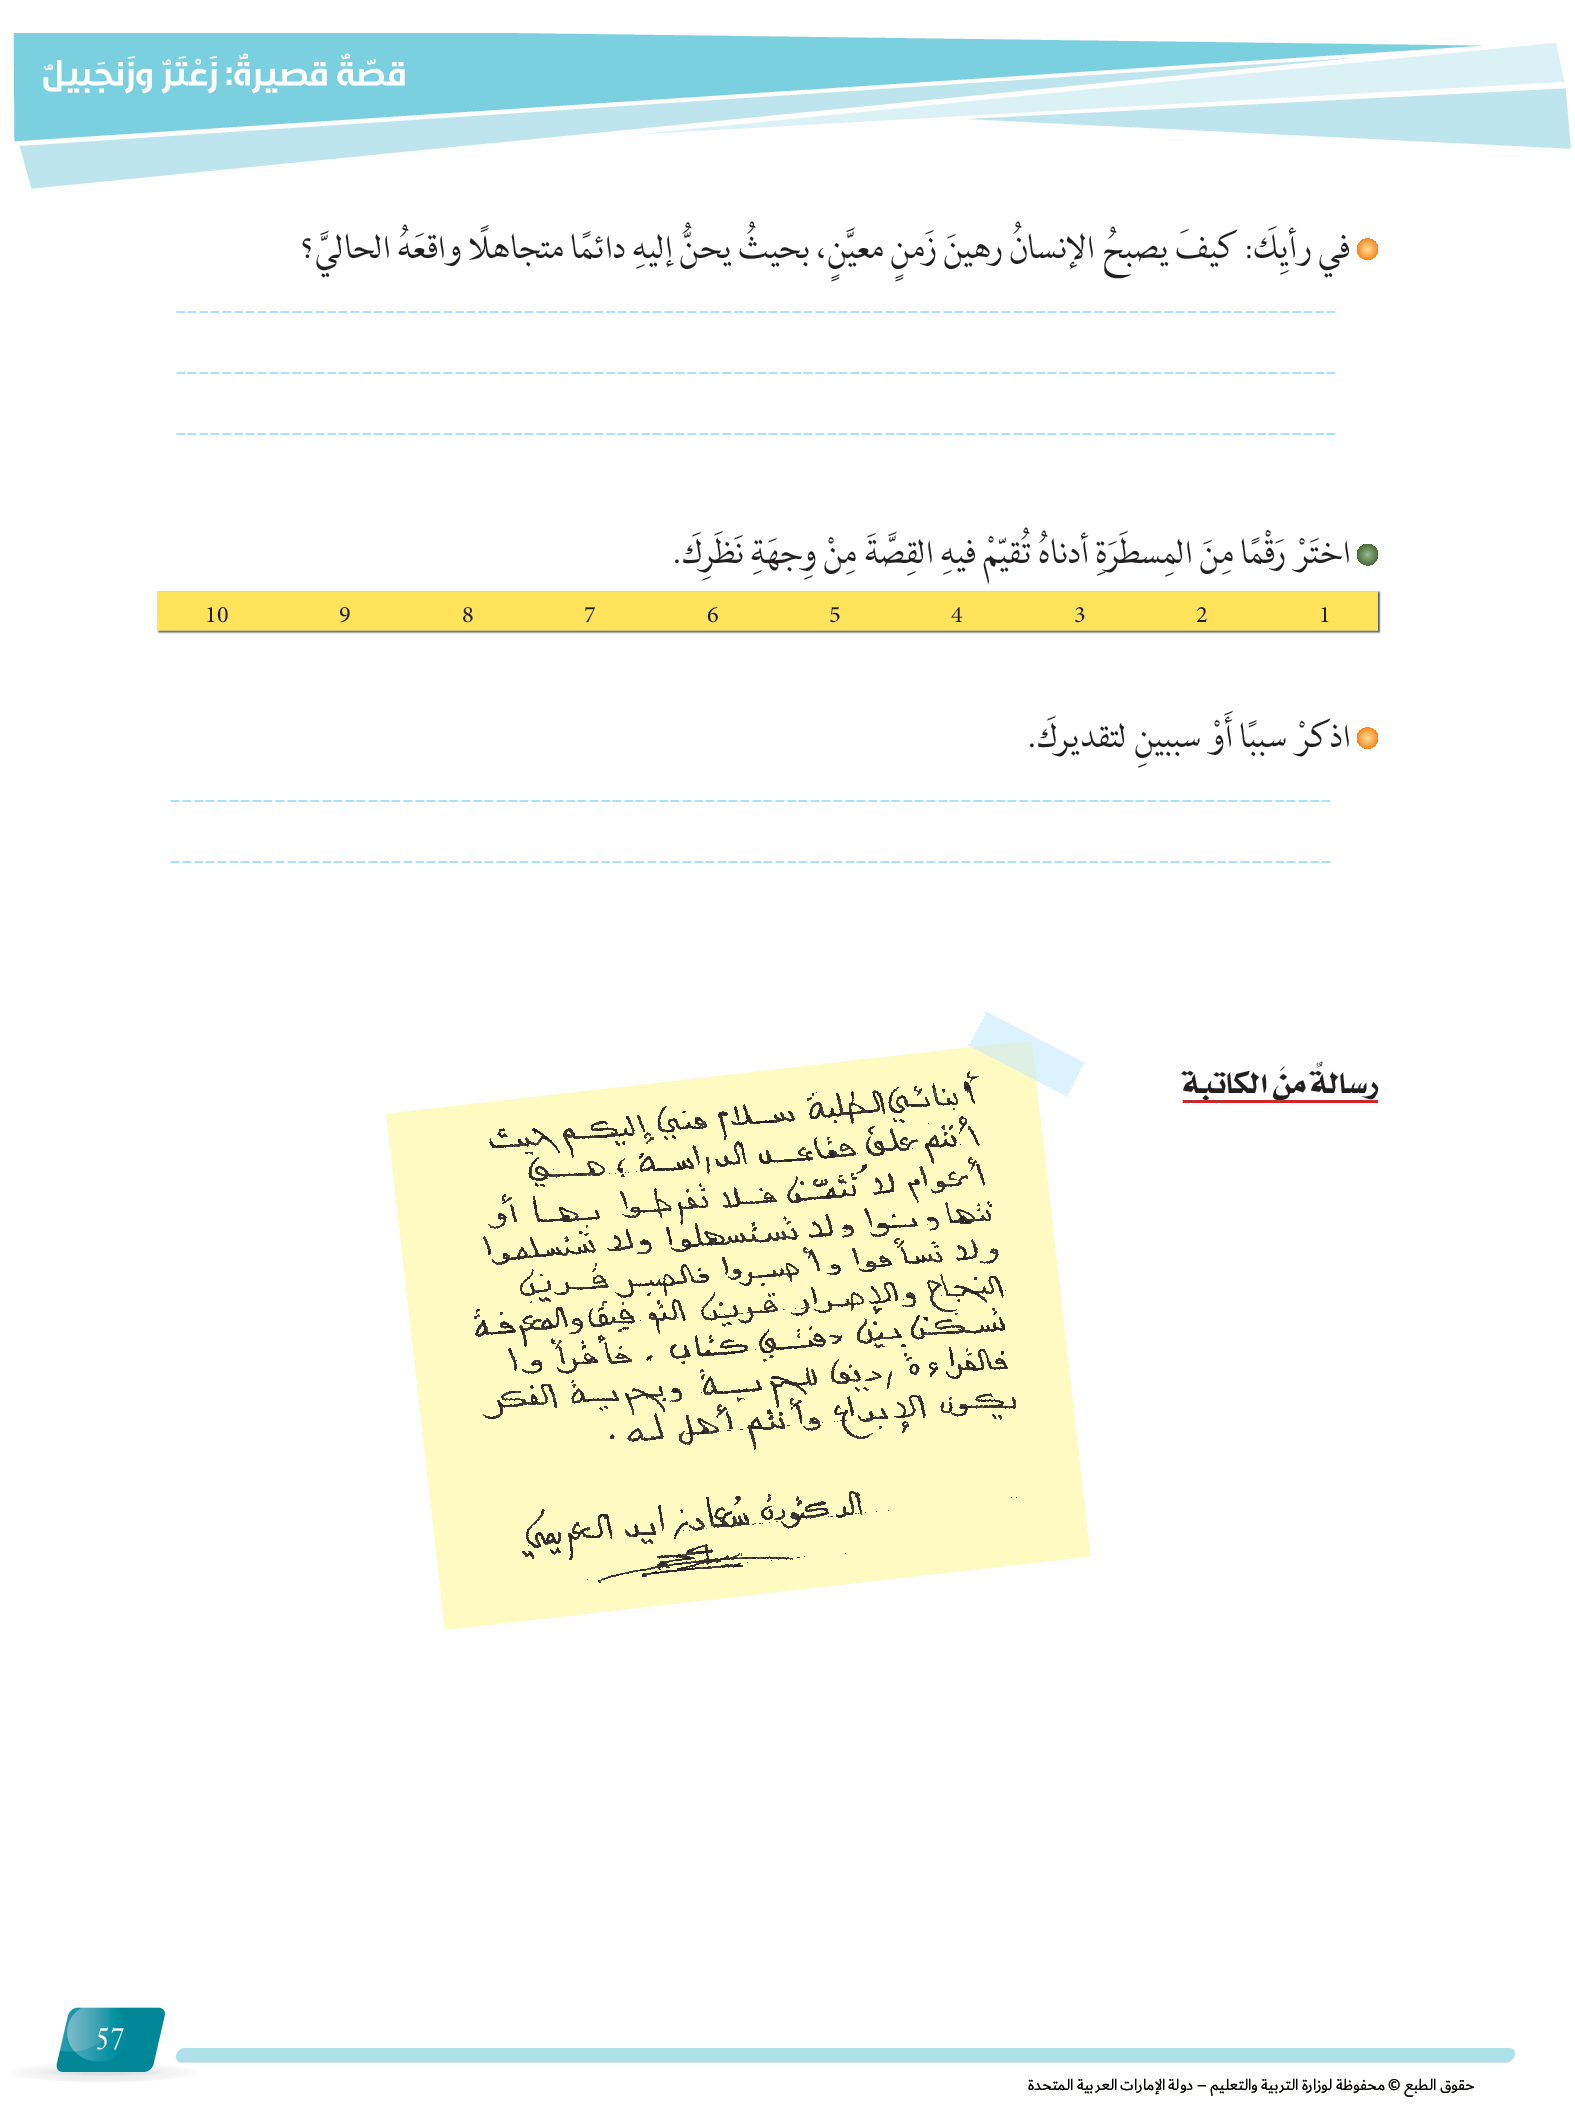 قصّةٌ قصيرةٌ: زَعْتَرٌ وزَنجَبيلٌ
في رأيِكَ: كيفَ يصبحُ الإنسانُ رهينَ زَمنٍ معيَّنٍ، بحيثُ يحنُّ إليهِ دائمًا متجاهلًا واقعَهُ الحاليَّ؟
اختَرْ رَقْمًا مِنَ المِسطَرَةِ أدناهُ تُقيّمْ فيهِ القِصَّةَ مِنْ وِجهَةِ نَظَرِكَ.
1 2 3 4 5 6 7 8 9 10
اذكرْ سببًا أَوْ سببينِ لتقديركَ.
رسالةٌ منَ الكاتبة
أبنائي الطلبة سلام مني إليكم حيث
أنتم على مقاعد الدراسة، هي
أعوام لا تُثمّن فلا تفرطوا بها أو
تتهاونوا ولا تستسهلوا ولا تستسلموا
ولا تسأموا وأصبروا فالصبر قرين
النجاح والإصرار قرين التوفيق والمعرفة
تسكن بين دفتي كتاب. فأقرأوا
فالقراءة رديف للحرية وبحرية الفكر
يكون الإبداع وأنتم أهل له.
الدكتورة سُعاد زايد العريمي
57
حقوق الطبع © محفوظة لوزارة التربية والتعليم – دولة الإمارات العربية المتحدة